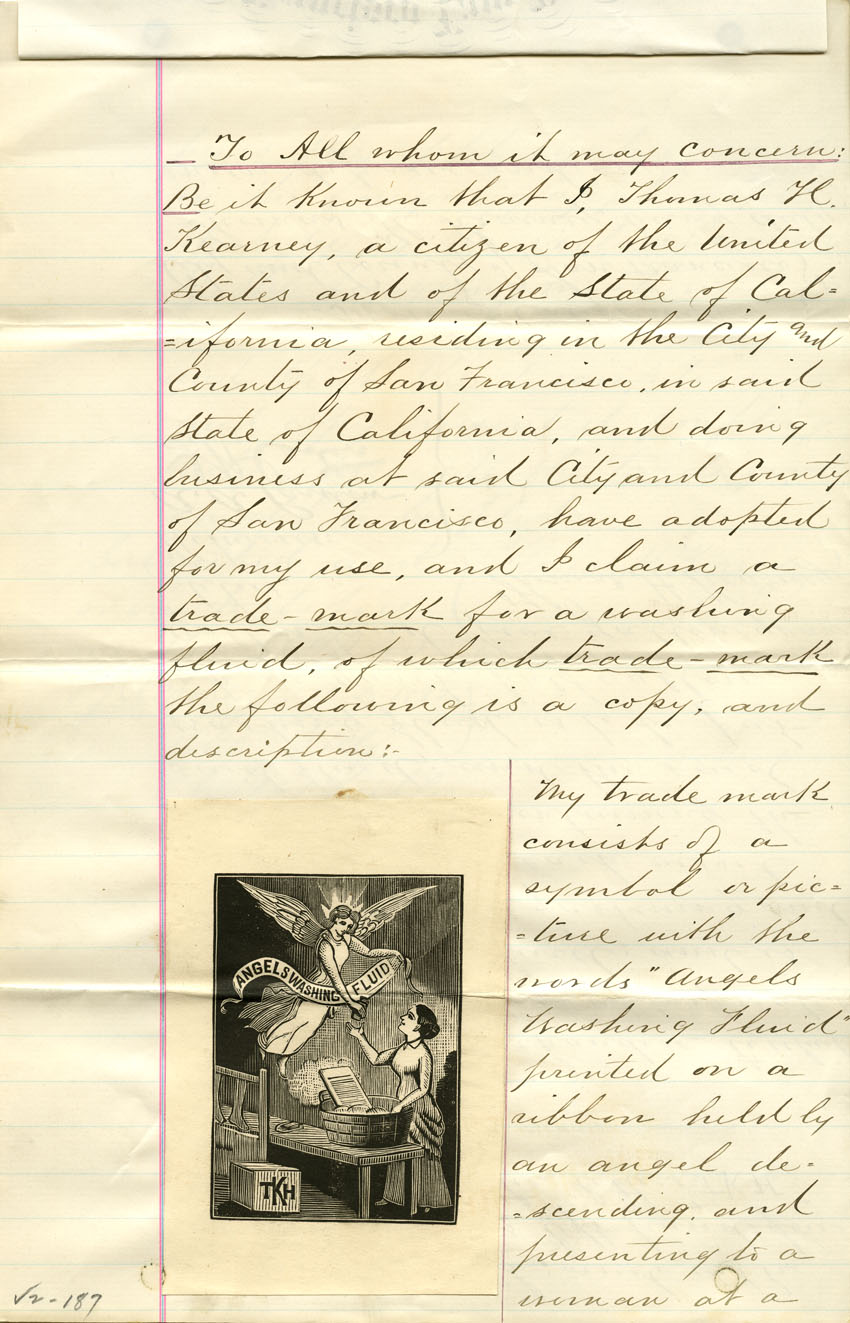 To All whom it may concern:
Be it Known that I, Thomas H.
Kearney, a citizen of the United
States and of the State of Cal=
=ifornia, residing in the City and
County of San Francisco, in said
State of California, and doing
business at said City and County
of San Francisco, have adopted
for my use, and I claim a
trade-mark for a washing
fluid, of which trade-mark
the following is a copy, and
description:-
ANGELS WASHING FLUID
TKH
My trade mark
consists of a
symbol or pic=
=ture with the
words "Angels
Washing Fluid"
printed on a
ribbon held by
an angel de=
=scending, and
presenting to a
woman at a
√2-187